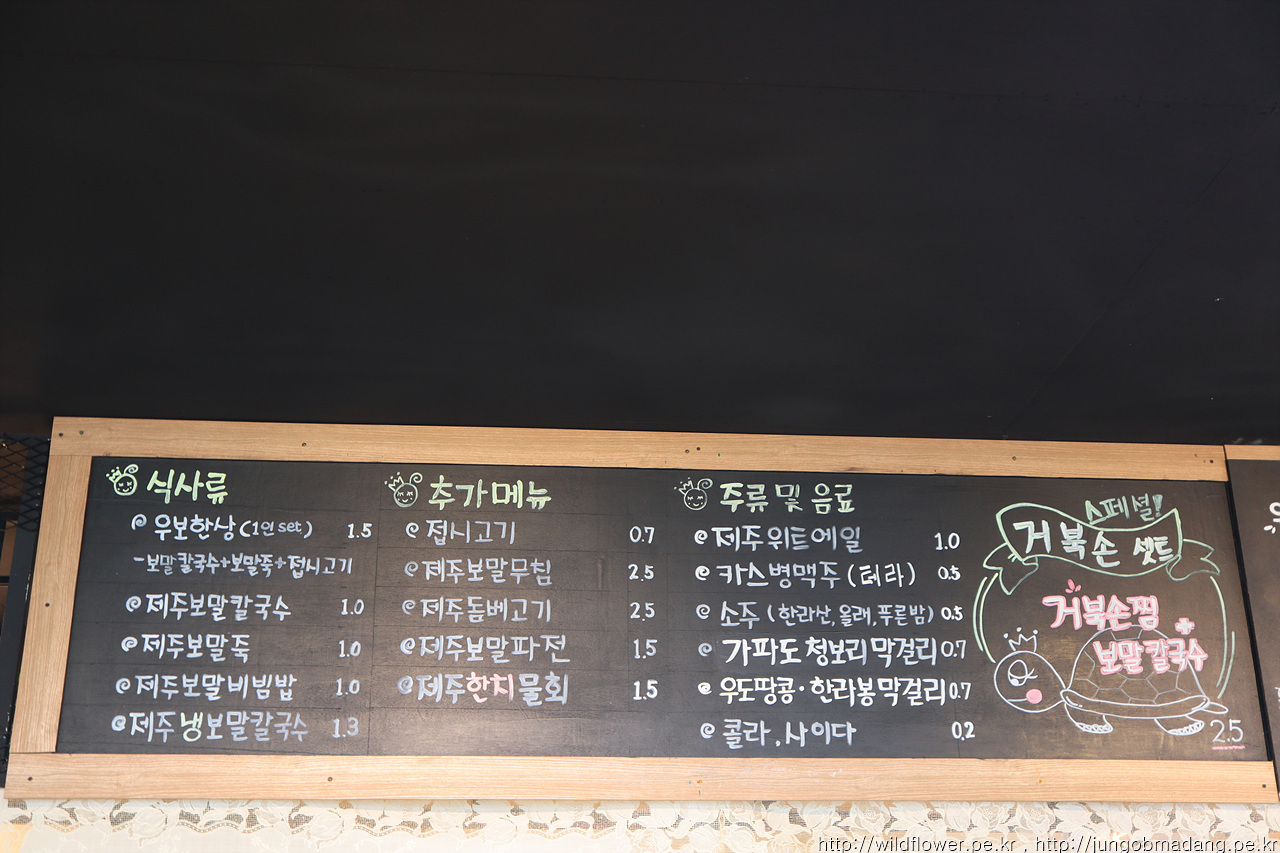 식사류
우보한상(1인 set.) 1.5
-보말칼국수+보말죽+접시고기
제주보말칼국수 1.0
제주보말죽 1.0
제주보말비빔밥 1.0
제주냉보말칼국수 1.3
추가메뉴
접시고기 0.7
제주보말무침 2.5
제주돔베고기 2.5
제주보말파전 1.5
제주한치물회 1.5
주류 및 음료
제주위트에일 1.0
카스병맥주 (테라) 0.5
소주 (한라산, 올래, 푸른밤) 0.5
가파도 청보리막걸리 0.7
우도땅콩·한라봉막걸리 0.7
콜라, 사이다 0.2
스페셜!
거북손 셋트
거북손찜
+
보말칼국수
2.5
http://wildflower.pe.kr , http://jungobmadang.pe.kr